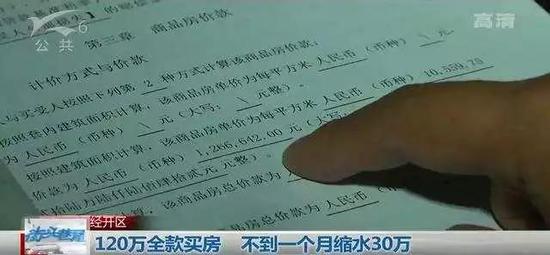 公共6
高清
第三章 商品房价款
计价方式与价款
人与买受人按照下列第 2 种方式计算该商品房价款:
按照套内建筑面积计算,该商品房单价为每平方米 人民币 (币种) \ 元
为 人民币 (币种) \ 元(大写: \ 元整)。
建筑面积计算,该商品房单价为每平方米 人民币 (币种) 10,559.73
为 人民币 (币种) 1,286,642.00 元(大写:
仟肆拾贰元 元整)。
价款为 人民币 (币种)
该商品房总价款为
经开区
120万全款买房 不到一个月缩水30万